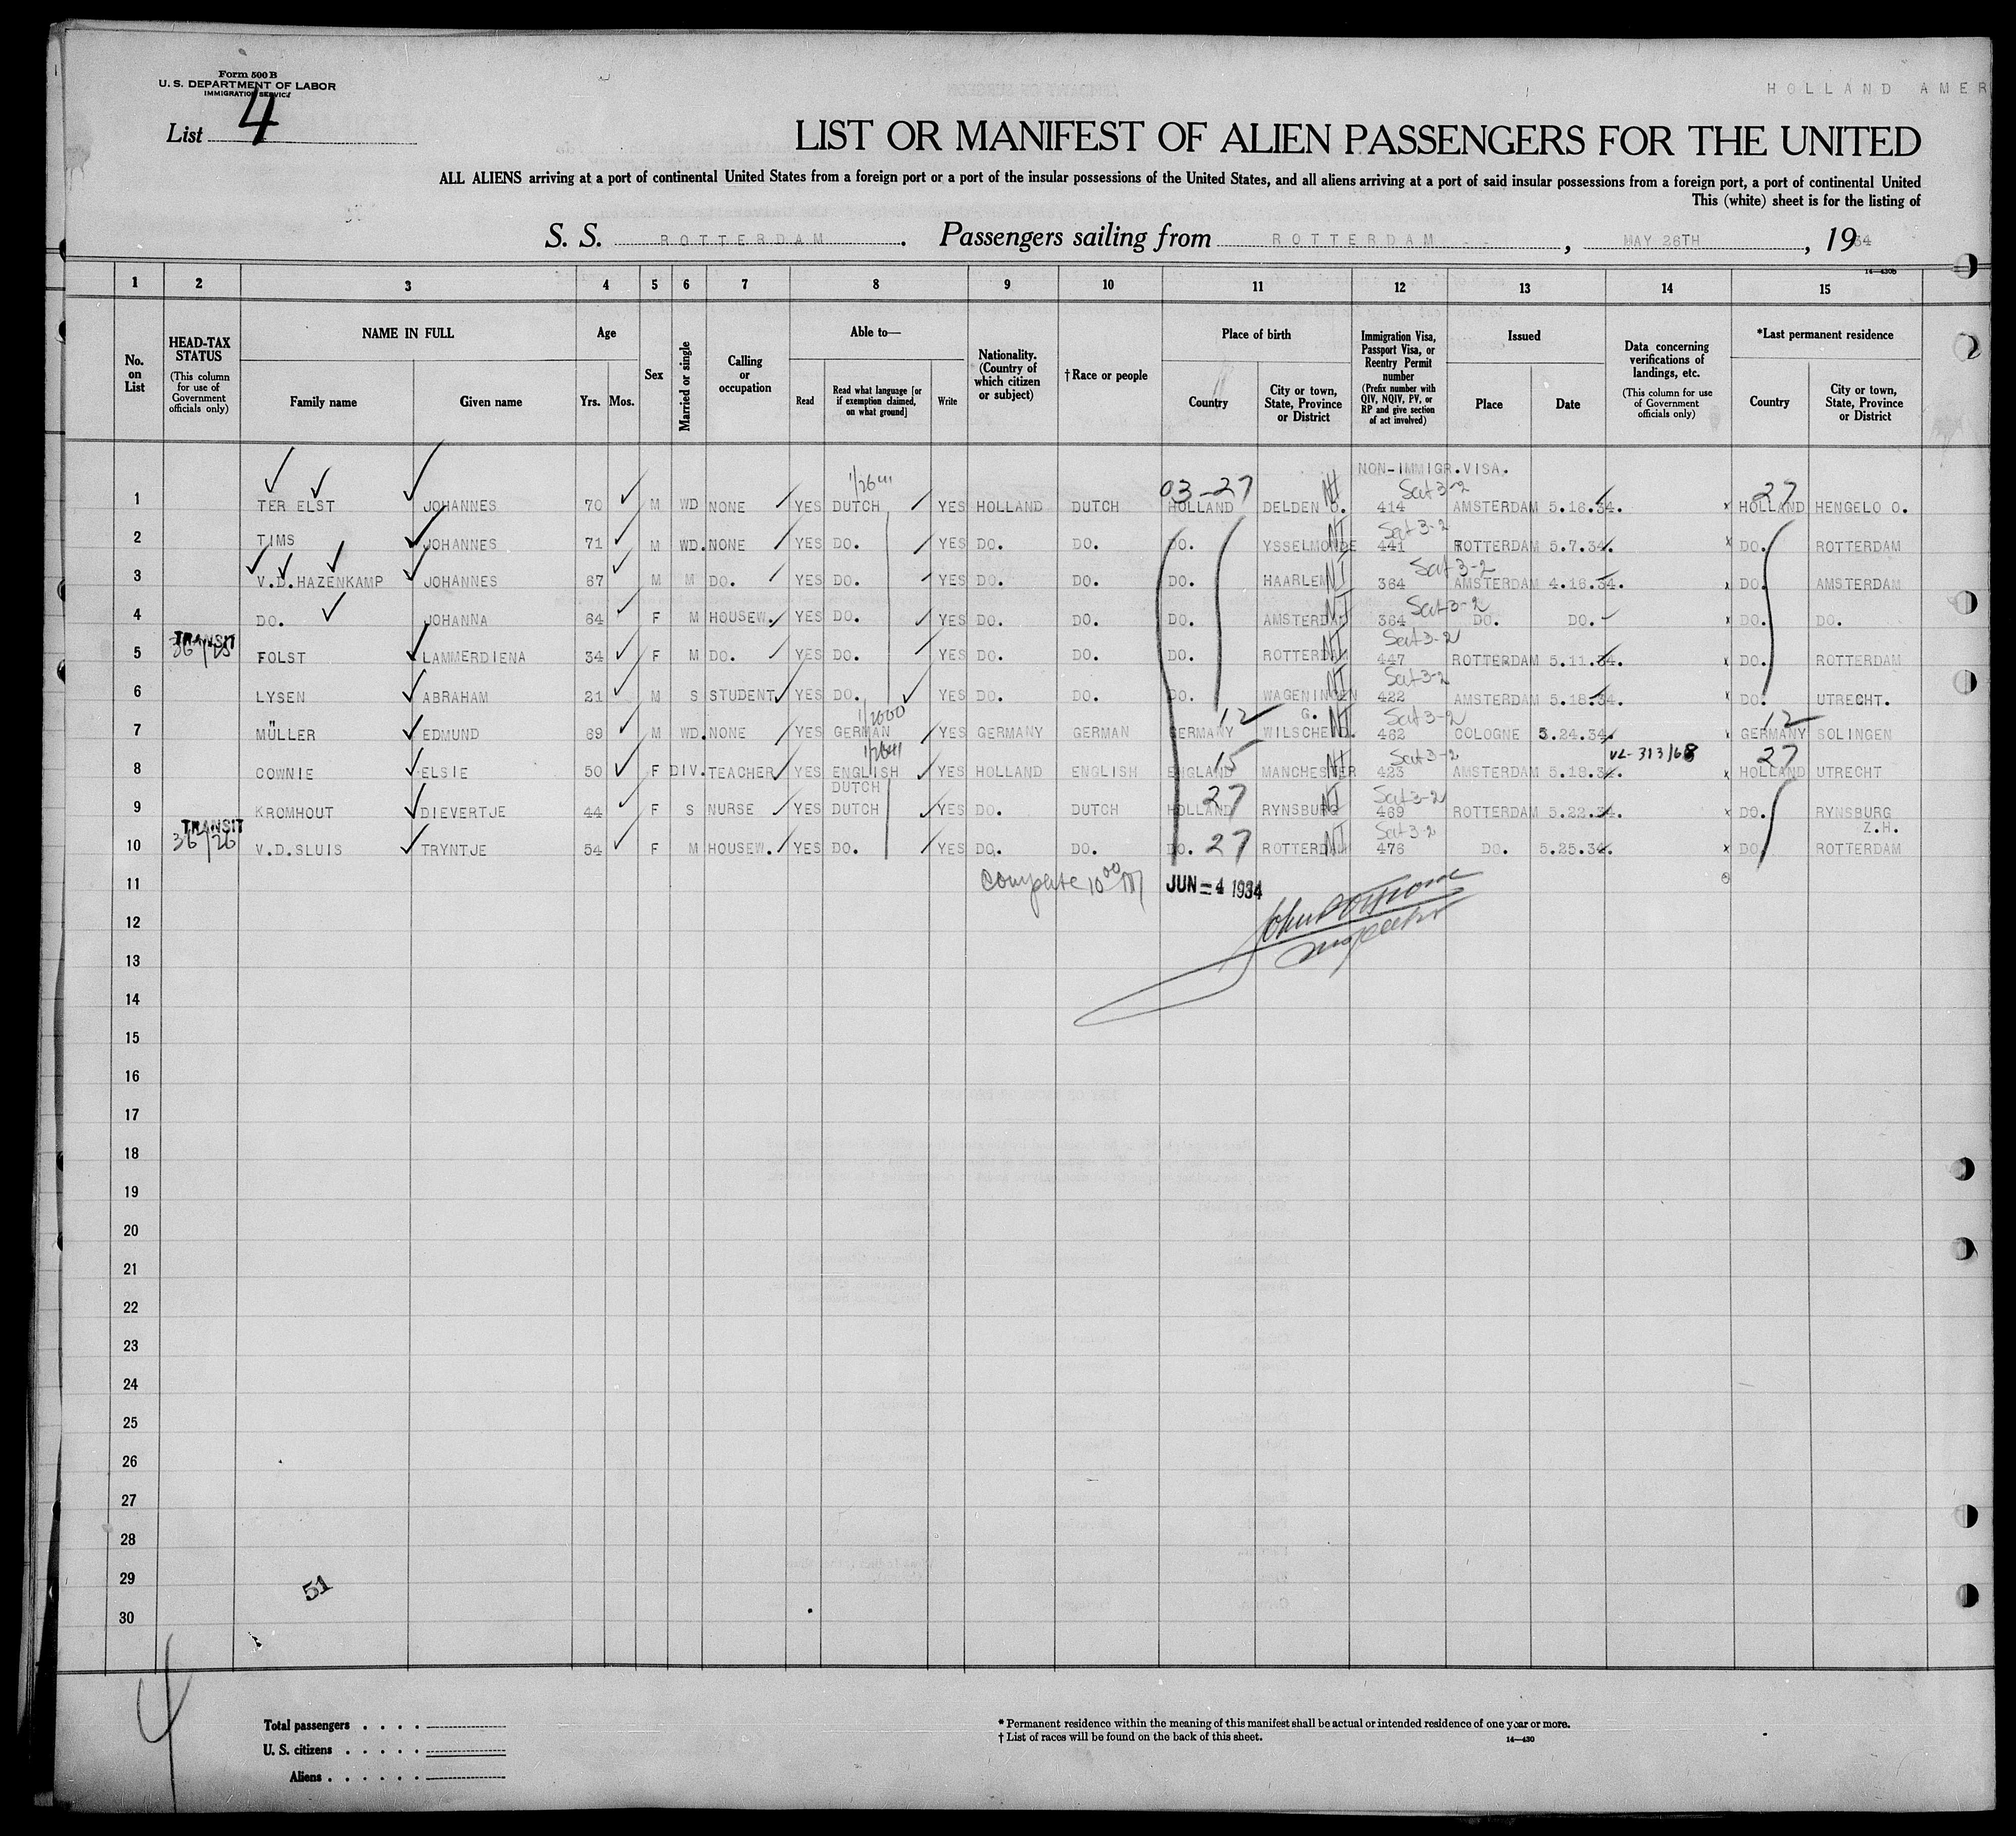 Form 500 B
U. S. DEPARTMENT OF LABOR
IMMIGRATION SERVICE
List 4
HOLLAND AMER
LIST OR MANIFEST OF ALIEN PASSENGERS FOR THE UNITED
ALL ALIENS arriving at a port of continental United States from a foreign port or a port of the insular possessions of the United States, and all aliens arriving at a port of said insular possessions from a foreign port, a port of continental United
This (white) sheet is for the listing of
S. S. ROTTERDAM. Passengers sailing from ROTTERDAM, MAY 26TH, 1934
1 2 3 4 5 6 7 8 9 10 11 12 13 14 15
No. on List
HEAD-TAX STATUS (This column for use of Government officials only)
NAME IN FULL Family name Given name
Age Yrs. Mos.
Sex
Married or single
Calling or occupation
Able to— Read Read what language [or if exemption claimed, on what ground] Write
Nationality. (Country of which citizen or subject)
†Race or people
Place of birth Country City or town, State, Province or District
Immigration Visa, Passport Visa, or Reentry Permit number (Prefix number with QIV, NQIV, PV, or RP and give section of act involved)
Issued Place Date
Data concerning verifications of landings, etc. (This column for use of Government officials only)
*Last permanent residence Country City or town, State, Province or District
NON-IMMIGR.VISA.
03-27 Sect 3-2 27
1 TER ELST JOHANNES 70 M WD NONE YES DUTCH YES HOLLAND DUTCH HOLLAND DELDEN O. 414 AMSTERDAM 5.16.34. x HOLLAND HENGELO O.
Sect 3-2
2 TIMS JOHANNES 71 M WD. NONE YES DO. YES DO. DO. DO. YSSELMONDE 441 ROTTERDAM 5.7.34. x DO. ROTTERDAM
Sect 3-2
3 V.D.HAZENKAMP JOHANNES 67 M M DO. YES DO. YES DO. DO. DO. HAARLEM 364 AMSTERDAM 4.16.34. x DO. AMSTERDAM
Sect 3-2
4 DO. JOHANNA 64 F M HOUSEW. YES DO. YES DO. DO. DO. AMSTERDAM 364 DO. DO. x DO. DO.
TRANSIT Sect 3-2
5 FOLST LAMMERDIENA 34 F M DO. YES DO. YES DO. DO. DO. ROTTERDAM 447 ROTTERDAM 5.11.34. x DO. ROTTERDAM
Sect 3-2
6 LYSEN ABRAHAM 21 M S STUDENT YES DO. YES DO. DO. DO. WAGENINGEN G. 422 AMSTERDAM 5.18.34. x DO. UTRECHT.
12 Sect 3-2 12
7 MÜLLER EDMUND 69 M WD. NONE YES GERMAN YES GERMANY GERMAN GERMANY 462 COLOGNE 5.24.34. x GERMANY SOLINGEN
15 Sect 3-2 VL-313/68 27
8 COWNIE ELSIE 50 F DIV. TEACHER YES ENGLISH DUTCH YES HOLLAND ENGLISH ENGLAND MANCHESTER 423 AMSTERDAM 5.18.34. x HOLLAND UTRECHT
27 Sect 3-2
9 KROMHOUT DIEVERTJE 44 F S NURSE YES DUTCH YES DO. DUTCH HOLLAND RYNSBURG 469 ROTTERDAM 5.22.34. x DO. RYNSBURG Z.H.
TRANSIT 36/26 27 Sect 3-2
10 V.D.SLUIS TRYNTJE 54 F M HOUSEW. YES DO. YES DO. DO. DO. ROTTERDAM 476 DO. 5.25.34. x DO. ROTTERDAM
11 complete JUN - 4 1934
12
13 Inspector
14
15
16
17
18
19
20
21
22
23
24
25
26
27
28
29
30
51
4
Total passengers
U. S. citizens
Aliens
* Permanent residence within the meaning of this manifest shall be actual or intended residence of one year or more.
† List of races will be found on the back of this sheet.
14—430